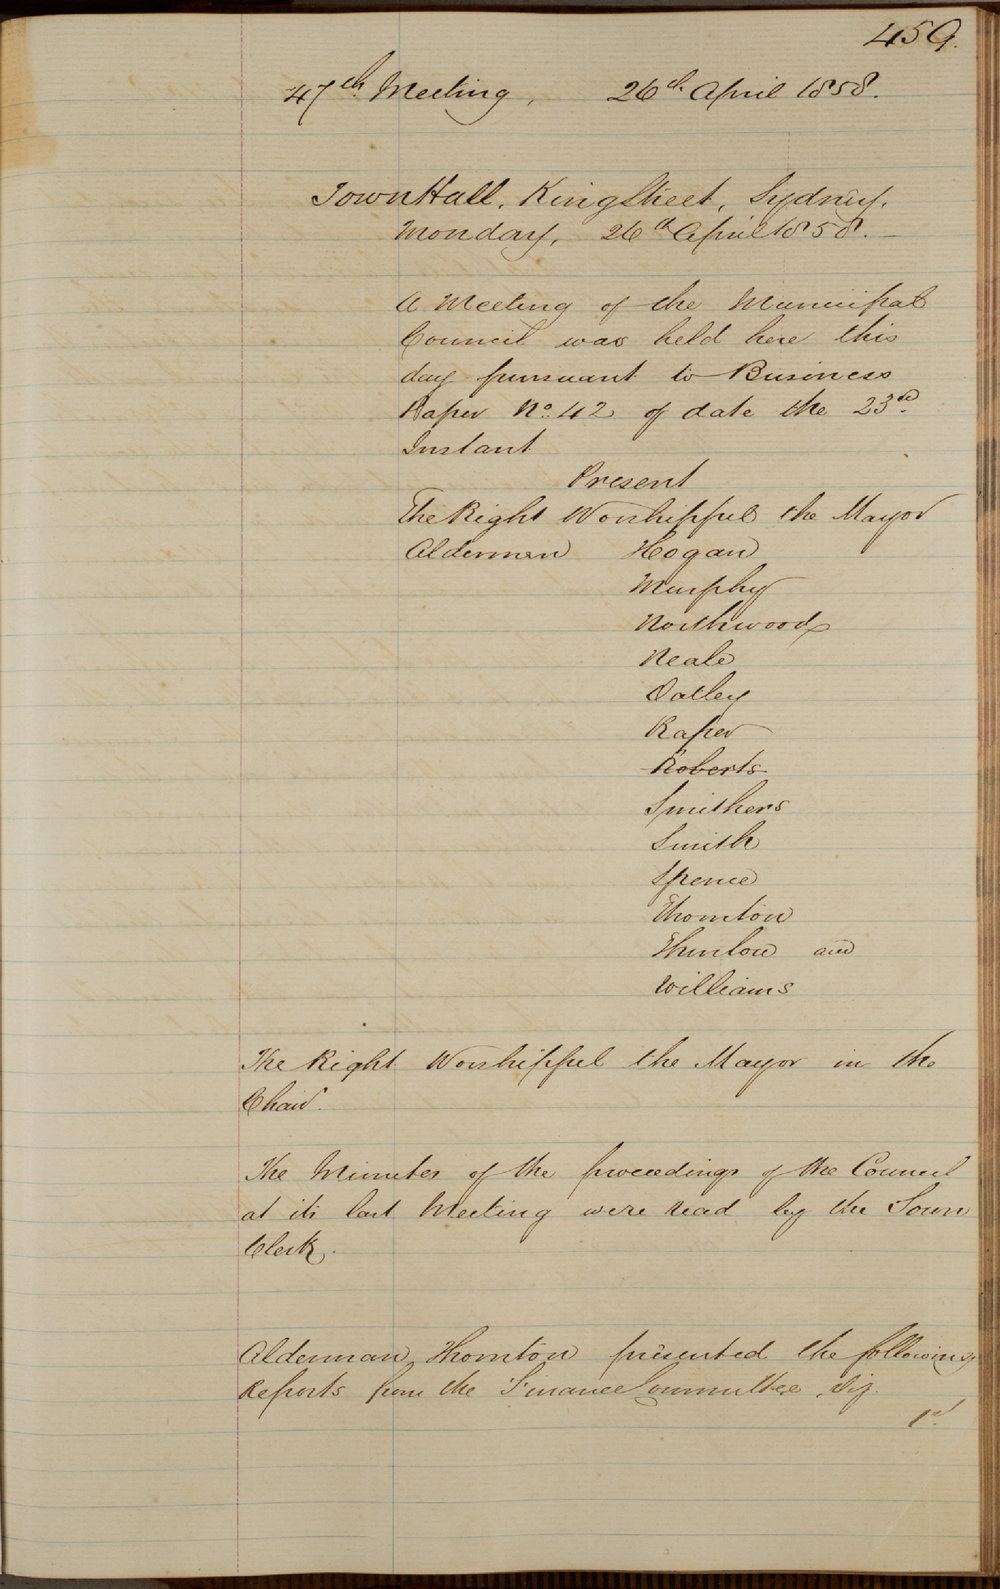 459.
47th Meeting, 26th April 1858.
Town Hall, King Street, Sydney,
Monday, 26th April 1858.—
A Meeting of the Municipal
Council was held here this
day pursuant to Business
Paper No. 42 of date the 23rd
Instant
Present
The Right Worshipful the Mayor
Aldermen Hogan
Murphy
Northwood
Neale
Oatley
Raper
Roberts
Smithers
Smith
Spence
Thornton
Thurlow and
Williams
The Right Worshipful the Mayor in the
Chair.
The Minutes of the proceedings of the Council
at its last Meeting were read by the Town
Clerk.
Alderman Thornton presented the following
Reports from the Finance Committee, viz.
1st